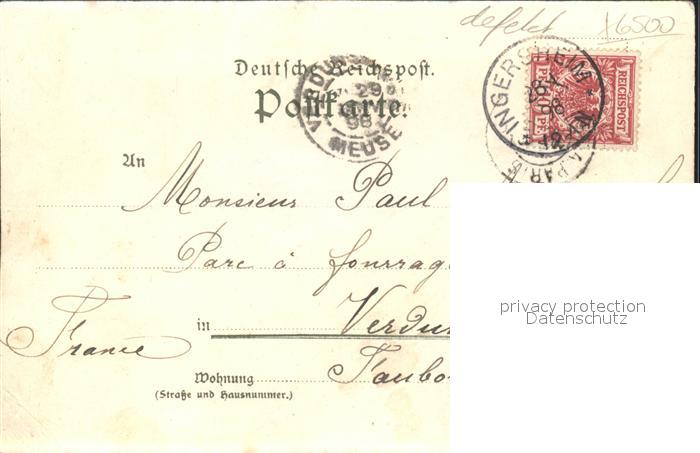 defekt X6500
Deutsche Reichspost.
Postkarte.
VERDUN
29
98
MEUSE
INGERSHEIM
28
98
REICHSPOST
PARIS
An
Monsieur Paul
Parc à fourrag
in Verdun
France
Wohnung Faubo
(Straße und Hausnummer.)
privacy protection
Datenschutz